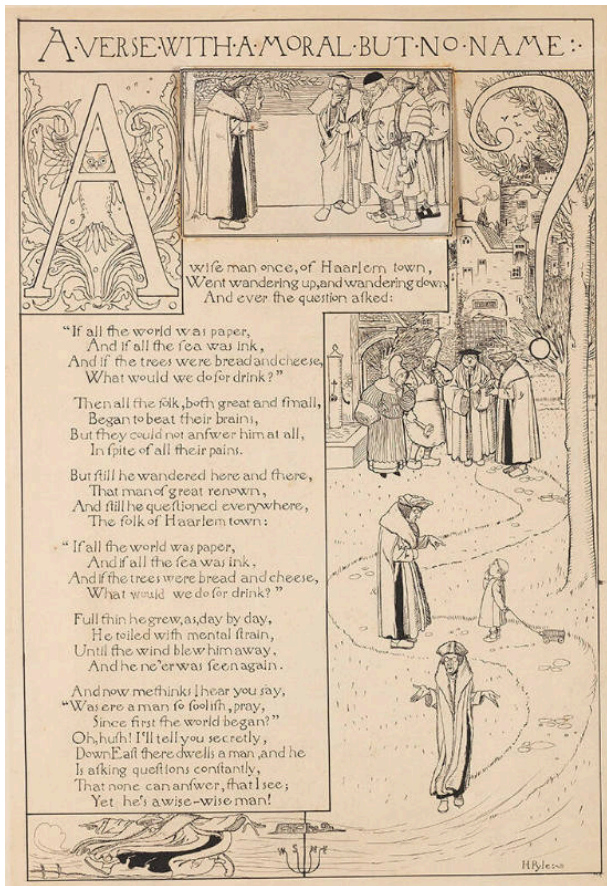 A·VERSE·WITH·A·MORAL·BUT·NO·NAME:·
A
wiſe man once, of Haarlem town,
Went wandering up, and wandering down,
And ever the queſtion aſked:
"If all the world was paper,
And if all the ſea was ink,
And if the trees were bread and cheese,
What would we do for drink?"
Then all the folk, both great and ſmall,
Began to beat their brains,
But they could not anſwer him at all,
In ſpite of all their pains.
But ſtill he wandered here and there,
That man of great renown,
And ſtill he queſtioned everywhere,
The folk of Haarlem town:
"If all the world was paper,
And if all the ſea was ink,
And if the trees were bread and cheese,
What would we do for drink?"
Full thin he grew, as, day by day,
He toiled with mental ſtrain,
Until the wind blew him away,
And he ne'er was ſeen again.
And now methinks I hear you say,
"Was ere a man ſo fooliſh, pray,
Since first the world began?"
Oh, huſh! I'll tell you secretly,
Down Eaſt there dwells a man, and he
Is aſking queſtions conſtantly,
That none can anſwer, that I see;
Yet he's a wise-wise man!
W S
H. Pyle